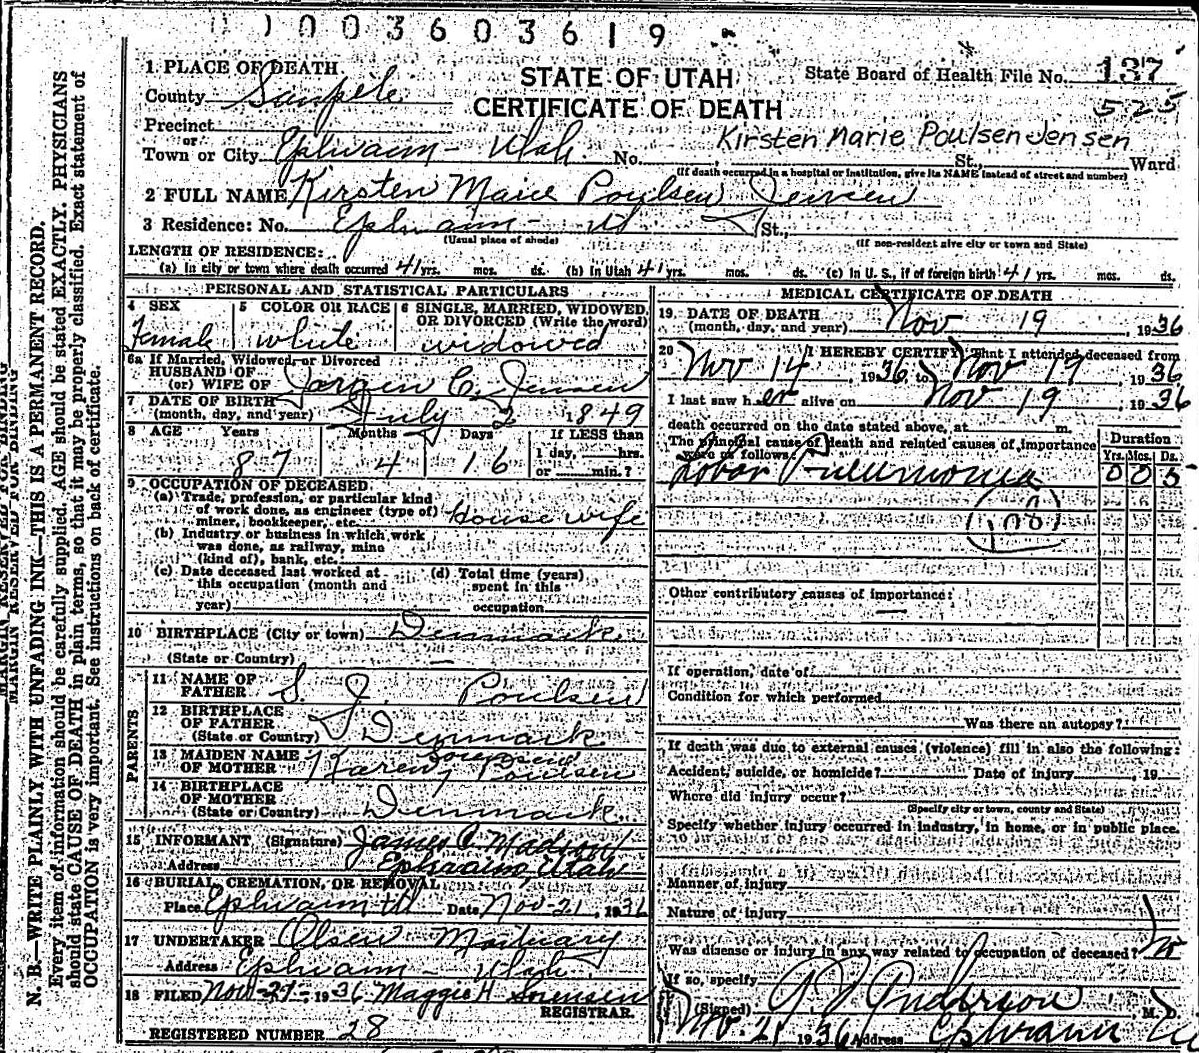 1003603619
STATE OF UTAH
CERTIFICATE OF DEATH
State Board of Health File No. 137
525
1 PLACE OF DEATH
County Sanpete
Precinct
or
Town or City Ephraim - Utah. No. St., Ward
Kirsten Marie Poulsen Jensen
(If death occurred in a hospital or institution, give its NAME instead of street and number)
2 FULL NAME Kirsten Marie Poulsen Jensen
3 Residence: No. Ephraim - Ut St.,
(Usual place of abode) (If non-resident give city or town and State)
LENGTH OF RESIDENCE:
(a) In city or town where death occurred 41 yrs. mos. ds. (b) In Utah 41 yrs. mos. ds. (c) In U. S., if of foreign birth 41 yrs. mos. ds.
PERSONAL AND STATISTICAL PARTICULARS
4 SEX Female
5 COLOR OR RACE white
6 SINGLE, MARRIED, WIDOWED, OR DIVORCED (Write the word) widowed
6a If Married, Widowed, or Divorced
HUSBAND OF
(or) WIFE OF Jorgen C. Jensen
7 DATE OF BIRTH
(month, day, and year) July 2 1849
8 AGE Years Months Days If LESS than
87 4 16 1 day, hrs.
or min.?
9 OCCUPATION OF DECEASED
(a) Trade, profession, or particular kind
of work done, as engineer (type of)
miner, bookkeeper, etc. House wife
(b) Industry or business in which work
was done, as railway, mine
(kind of), bank, etc.
(c) Date deceased last worked at
this occupation (month and
year)
(d) Total time (years)
spent in this
occupation
10 BIRTHPLACE (City or town) Denmark
(State or Country) —
PARENTS
11 NAME OF
FATHER S. J. Poulsen
12 BIRTHPLACE
OF FATHER
(State or Country) Denmark
13 MAIDEN NAME
OF MOTHER Karen Poulsen
14 BIRTHPLACE
OF MOTHER
(State or Country) Denmark
15 INFORMANT (Signature) James C. Madson
Address Ephraim, Utah
16 BURIAL, CREMATION, OR REMOVAL
Place Ephraim Ut Date Nov-21, 1936
17 UNDERTAKER Olsen Mortuary
Address Ephraim - Utah.
18 FILED Nov-21- 1936 Maggie H Sorensen
REGISTRAR.
REGISTERED NUMBER 28
MEDICAL CERTIFICATE OF DEATH
19 DATE OF DEATH
(month, day, and year) Nov 19, 1936
20 I HEREBY CERTIFY, That I attended deceased from
Nov 14, 1936, to Nov 19, 1936
I last saw her alive on Nov 19, 1936
death occurred on the date stated above, at m.
The principal cause of death and related causes of importance
were as follows:
Duration
Yrs. Mos. Ds.
Lobar Pneumonia 0 0 5
108
Other contributory causes of importance:
—
If operation, date of
Condition for which performed
Was there an autopsy?
If death was due to external causes (violence) fill in also the following:
Accident, suicide, or homicide? Date of injury , 19
Where did injury occur?
(Specify city or town, county and State)
Specify whether injury occurred in industry, in home, or in public place.
Manner of injury
Nature of injury
Was disease or injury in any way related to occupation of deceased? No
If so, specify
(Signed) Anderson M. D.
Nov. 21 1936 Address Ephraim Ut
N. B.—WRITE PLAINLY WITH UNFADING INK—THIS IS A PERMANENT RECORD.
Every item of information should be carefully supplied. AGE should be stated EXACTLY. PHYSICIANS
should state CAUSE OF DEATH in plain terms, so that it may be properly classified. Exact statement of
OCCUPATION is very important. See instructions on back of certificate.
MARGIN RESERVED FOR BINDING